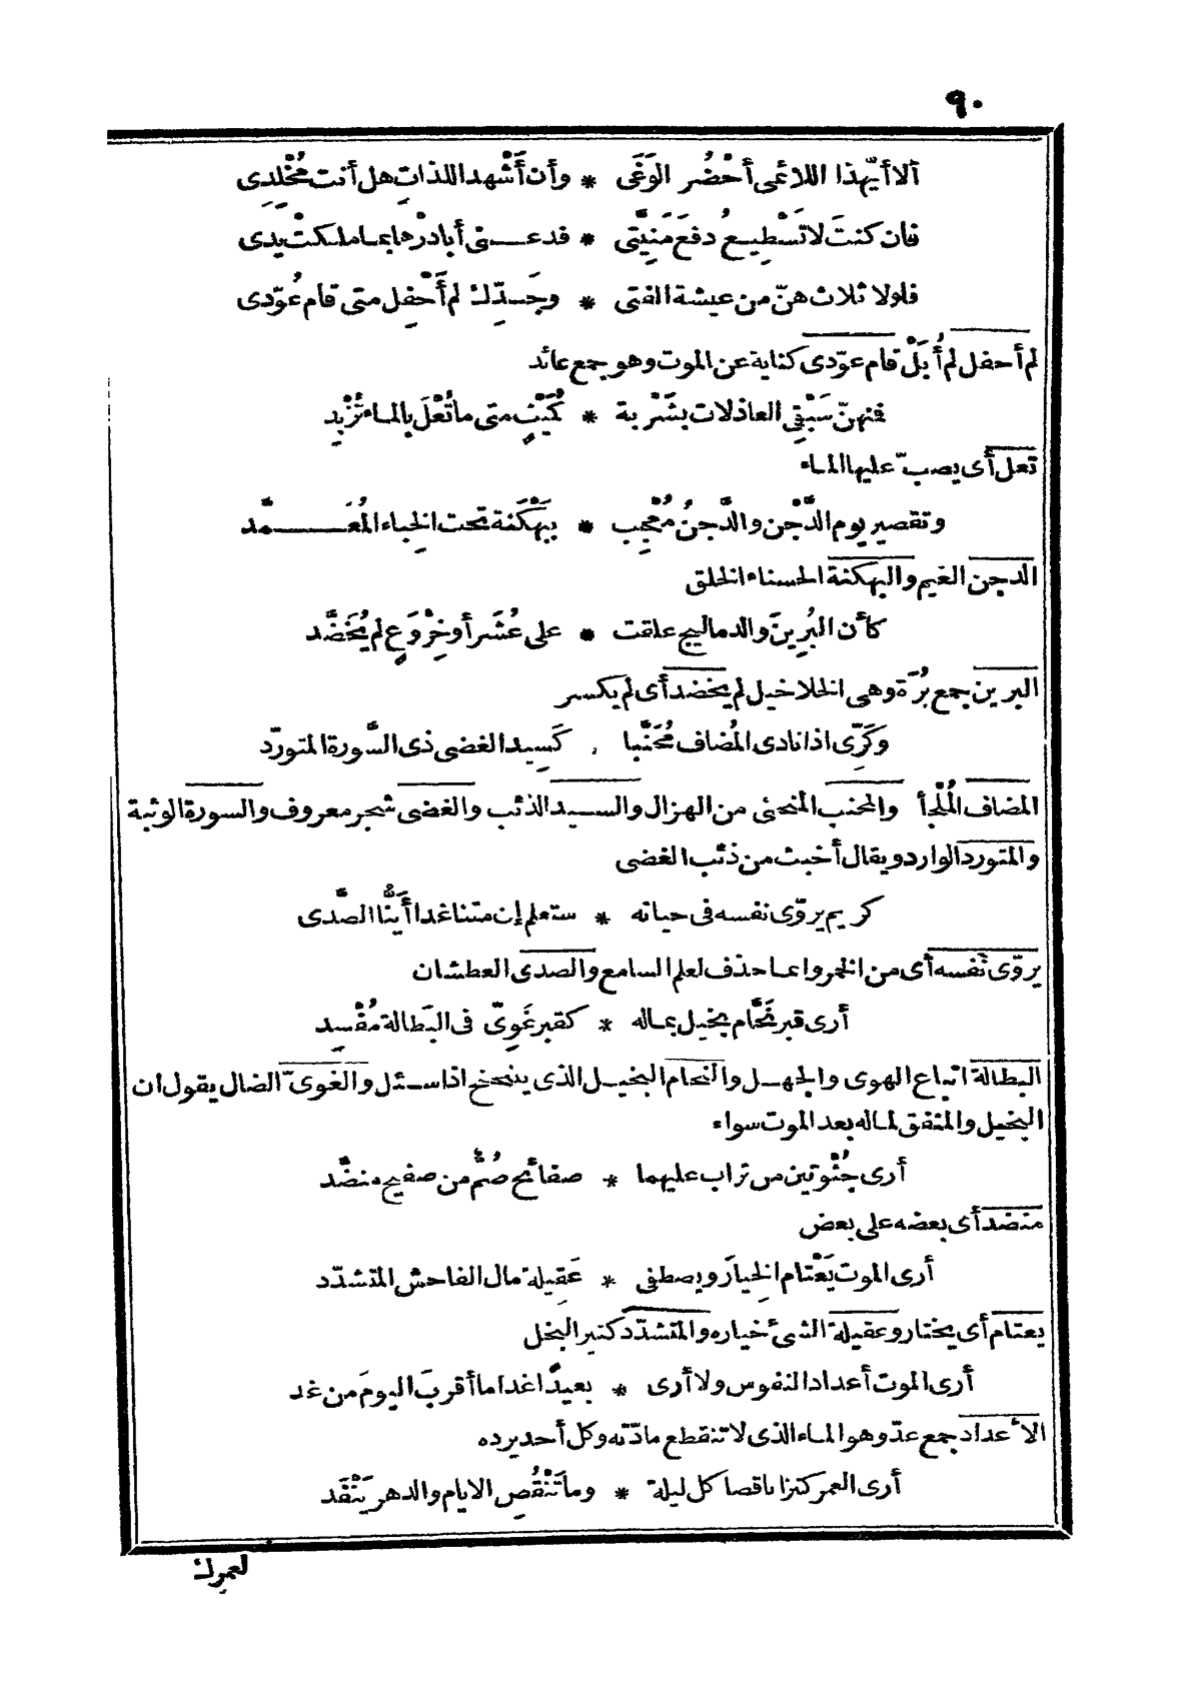 ٩٠
ألا أيّهذا اللائمى أحْضُر الوَغَى * وأن أَشْهد اللذاتِ هل أنت مُخْلِدِى
فان كنتَ لا تَسْطِيعُ دفعَ مَنِيَّتى * فدعنى أبادرْها بما ملكتْ يدى
فلولا ثلاث هنّ من عيشة الفتى * وجَدِّك لم أَحْفِل متى قام عُوّدى
لم أحفل لم أُبَلْ قام عوّدى كناية عن الموت وهو جمع عائد
فمنهنّ سَبْقِى العاذلات بشَرْبة * كُمَيْتٍ متى ما تُعْلَ بالماء تُزْبِدِ
تعل أى يصبّ عليها الماء
وتقصير يوم الدَّجْن والدَّجنُ مُعْجِب * ببَهْكَنة تحت الخِباء المُعَمَّد
الدجن الغيم والبهكنة الحسناء الخلق
كأن البُرِينَ والدماليج علقت * على عُشَر أو خِرْوَعٍ لم يُخَضَّد
البرين جمع بُرَة وهى الخلاخيل لم يخضد أى لم يكسر
وكَرِّى اذا نادى المُضاف مُحَنَّبا . كَسِيد الغضى ذى السَّورة المتورّد
المضاف المُلْجأ والمحنب المنحنى من الهزال والسيد الذئب والغضى شجر معروف والسورة الوثبة
والمتورد الوارد ويقال أخبث من ذئب الغضى
كريم يروّى نفسه فى حياته * ستعلم إن متنا غدا أيُّنا الصَّدى
يروّى نفسه أى من الخمر وانما حذف لعلم السامع والصدى العطشان
أرى قبر نَحَّام بخيل بماله * كقبر غَوِىّ فى البَطالة مُفْسِدِ
البطالة اتباع الهوى والجهل والنحام البخيل الذى يتنحنح اذا سئل والغوىّ الضال يقول ان
البخيل والمتفق لماله بعد الموت سواء
أرى جُثْوتين من تراب عليهما * صفائح صُمٌّ من صفيح منضَّد
منضد أى بعضه على بعض
أرى الموت يَعْتام الخِيارَ ويصطفى * عَقِيلة مال الفاحش المتشدّد
يعتام أى يختار وعقيلة الشئ خياره والمتشدّد كثير البخل
أرى الموت أعداد النفوس ولا أرى * بعيدًا غدا ما أقربَ اليومَ من غد
الأعداد جمع عدّ وهو الماء الذى لا تنقطع مادّته وكل أحد يرده
أرى العمر كنزا ناقصا كل ليلة * وما تَنْقُصِ الايام والدهر يَنْفَد
لعمرك